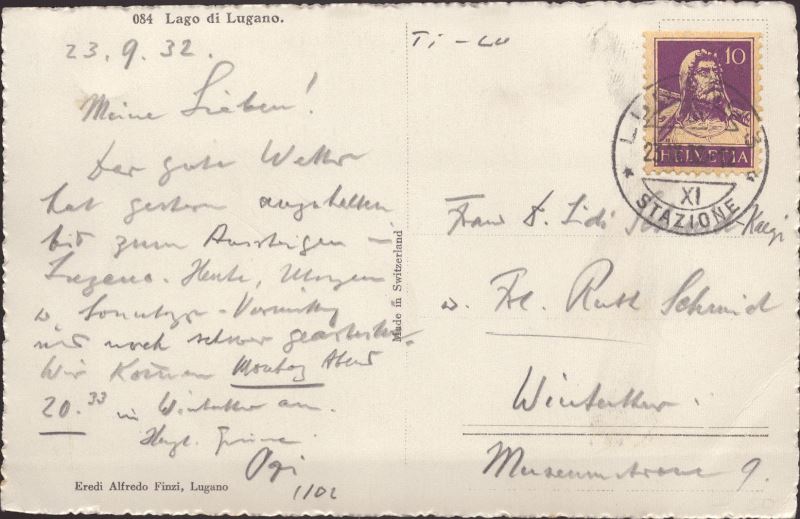 084 Lago di Lugano.
23.9.32.
Meine Lieben!
Das gute Wetter
hat gestern angehalten
bis zum Aussteigen in
Lugano. Heute, Morgen
u Sonntag-Vormittag
wird noch schwer gearbeitet.
Wir kommen Montag Abend
20.33 in Winterthur an.
Herzl. Grüsse
Ogi
1102
Eredi Alfredo Finzi, Lugano
Made in Switzerland
TI-LU
10
HELVETIA
XI
STAZIONE
Frau D. Lidi Kaegi
u. Frl. Ruth Schmid
Winterthur
Museumstrasse 9.